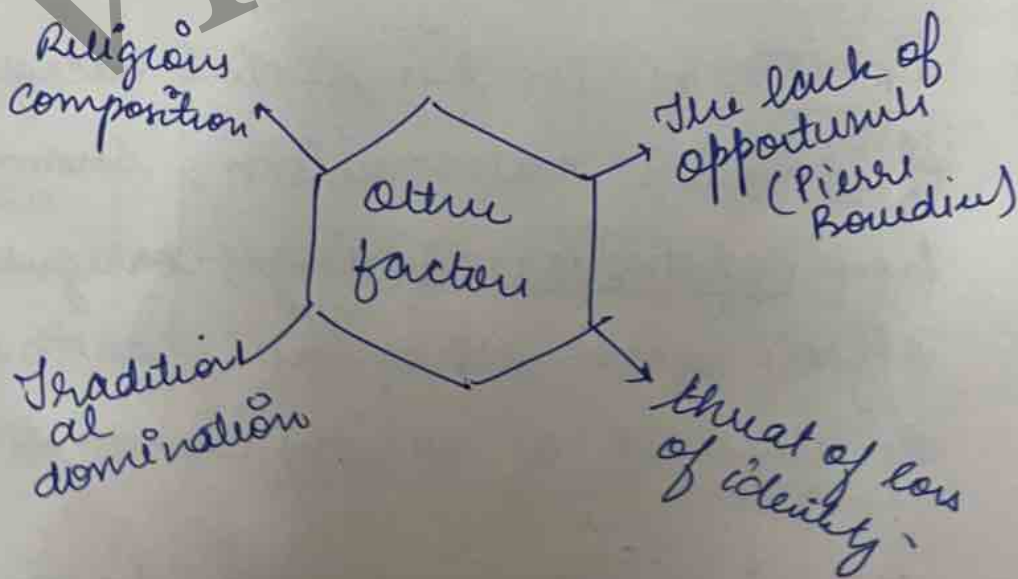 Religious
composition
The lack of
opportunities
(Pierre
Bourdieu)
Other
factors
Tradition
al
domination
threat of loss
of identity.